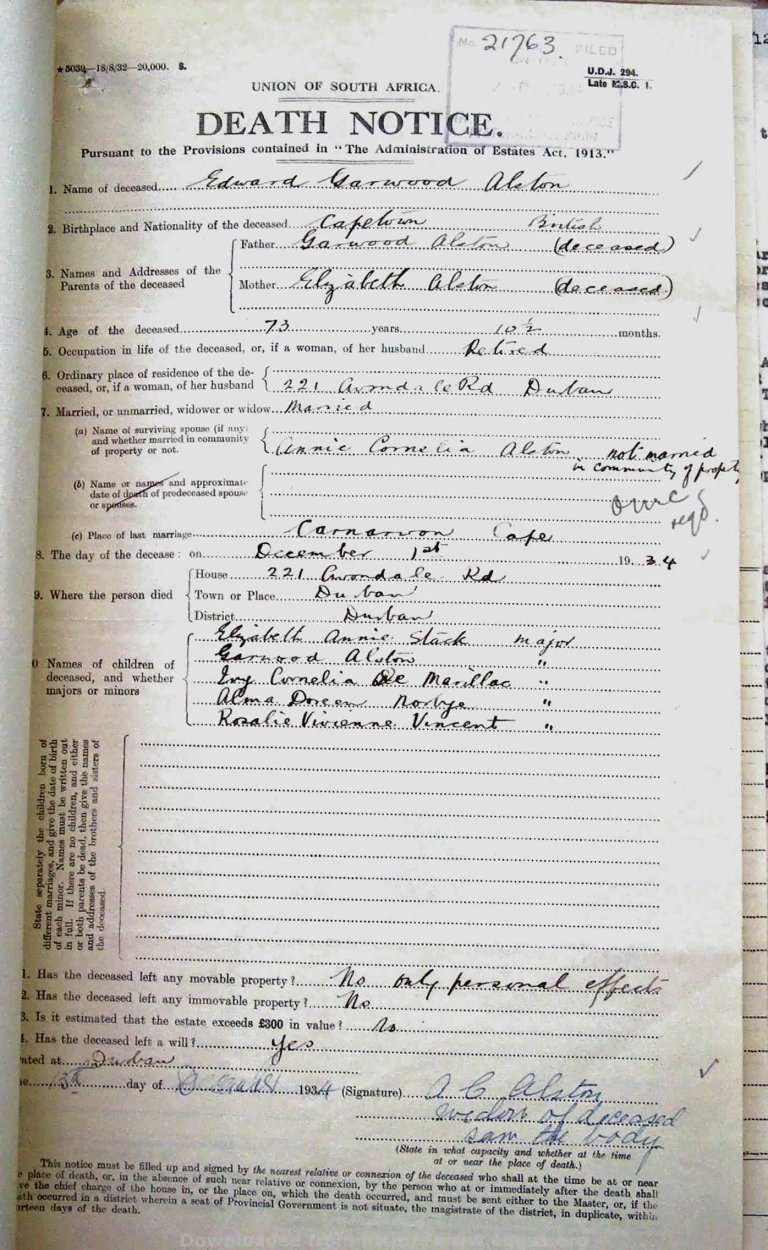 ★5039—18/8/32—20,000. S.
No 21763. FILED
U.D.J. 294.
Late M.S.C. 1.
UNION OF SOUTH AFRICA.
DEATH NOTICE.
Pursuant to the Provisions contained in "The Administration of Estates Act, 1913."
1. Name of deceased Edward Garwood Alston
2. Birthplace and Nationality of the deceased Capetown British
3. Names and Addresses of the Parents of the deceased
Father Garwood Alston (deceased)
Mother Elizabeth Alston (deceased)
4. Age of the deceased 73 years 10½ months.
5. Occupation in life of the deceased, or, if a woman, of her husband Retired
6. Ordinary place of residence of the de-
ceased, or, if a woman, of her husband 221 Avondale Rd Durban
7. Married, or unmarried, widower or widow Married
(a) Name of surviving spouse (if any)
and whether married in community
of property or not. Annie Cornelia Alston not married
in community of property
(b) Name or names and approximate
date of death of predeceased spouse
or spouses.
omc
reqd.
(c) Place of last marriage Carnarvon Cape
8. The day of the decease: on December 1st 1934
9. Where the person died
House 221 Avondale Rd
Town or Place Durban
District Durban
0 Names of children of
deceased, and whether
majors or minors
Elizabeth Annie Stack major
Garwood Alston "
Ivy Cornelia De Marillac "
Alma Doreen Norbye "
Rosalie Vivienne Vincent "
State separately the children born of
different marriages, and give the date of birth
of each minor. Names must be written out
in full. If there are no children, and either
or both parents be dead, then give the names
and addresses of the brothers and sisters of
the deceased.
1. Has the deceased left any movable property? No only personal effects
2. Has the deceased left any immovable property? No
3. Is it estimated that the estate exceeds £300 in value? No
4. Has the deceased left a will? Yes
ated at Durban
he 3rd day of December 1934 (Signature) A C Alston
widow of deceased
saw the body
(State in what capacity and whether at the time
at or near the place of death.)
This notice must be filled up and signed by the nearest relative or connexion of the deceased who shall at the time be at or near
e place of death, or, in the absence of such near relative or connexion, by the person who at or immediately after the death shall
ve the chief charge of the house in, or the place on, which the death occurred, and must be sent either to the Master, or, if the
ath occurred in a district wherein a seat of Provincial Government is not situate, the magistrate of the district, in duplicate, within
urteen days of the death.